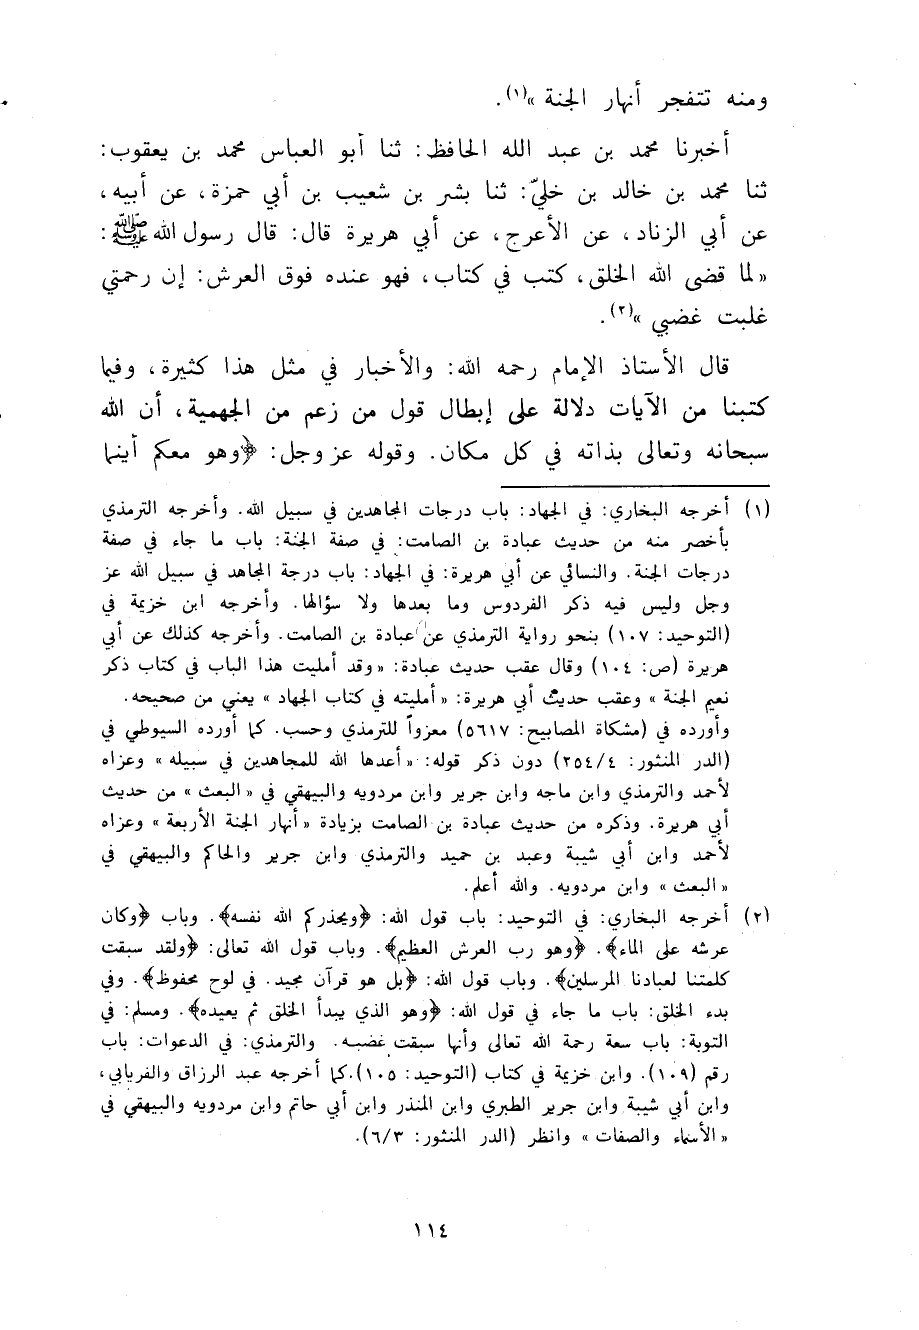 ومنه تتفجر أنهار الجنة »(١).
أخبرنا محمد بن عبد الله الحافظ: ثنا أبو العباس محمد بن يعقوب:
ثنا محمد بن خالد بن خليّ: ثنا بشر بن شعيب بن أبي حمزة، عن أبيه،
عن أبي الزناد، عن الأعرج، عن أبي هريرة قال: قال رسول الله ﷺ:
« لما قضى الله الخلق، كتب في كتاب، فهو عنده فوق العرش: إن رحمتي
غلبت غضبي »(٢).
قال الأستاذ الإمام رحمه الله: والأخبار في مثل هذا كثيرة، وفيما
كتبنا من الآيات دلالة على إبطال قول من زعم من الجهمية، أن الله
سبحانه وتعالى بذاته في كل مكان. وقوله عز وجل: ﴿وهو معكم أينما
(١) أخرجه البخاري: في الجهاد: باب درجات المجاهدين في سبيل الله. وأخرجه الترمذي
بأخصر منه من حديث عبادة بن الصامت: في صفة الجنة: باب ما جاء في صفة
درجات الجنة. والنسائي عن أبي هريرة: في الجهاد: باب درجة المجاهد في سبيل الله عز
وجل وليس فيه ذكر الفردوس وما بعدها ولا سؤالها. وأخرجه ابن خزيمة في
(التوحيد: ١٠٧) بنحو رواية الترمذي عن عبادة بن الصامت. وأخرجه كذلك عن أبي
هريرة (ص: ١٠٤) وقال عقب حديث عبادة: « وقد أمليت هذا الباب في كتاب ذكر
نعيم الجنة » وعقب حديث أبي هريرة: « أمليته في كتاب الجهاد » يعني من صحيحه.
وأورده في (مشكاة المصابيح: ٥٦١٧) معزواً للترمذي وحسب. كما أورده السيوطي في
(الدر المنثور: ٢٥٤/٤) دون ذكر قوله: « أعدها الله للمجاهدين في سبيله » وعزاه
لأحمد والترمذي وابن ماجه وابن جرير وابن مردويه والبيهقي في « البعث » من حديث
أبي هريرة. وذكره من حديث عبادة بن الصامت بزيادة « أنهار الجنة الأربعة » وعزاه
لأحمد وابن أبي شيبة وعبد بن حميد والترمذي وابن جرير والحاكم والبيهقي في
« البعث » وابن مردويه. والله أعلم.
(٢) أخرجه البخاري: في التوحيد: باب قول الله: ﴿ويحذركم الله نفسه﴾. وباب ﴿وكان
عرشه على الماء﴾. ﴿وهو رب العرش العظيم﴾. وباب قول الله تعالى: ﴿ولقد سبقت
كلمتنا لعبادنا المرسلين﴾. وباب قول الله: ﴿بل هو قرآن مجيد. في لوح محفوظ﴾. وفي
بدء الخلق: باب ما جاء في قول الله: ﴿وهو الذي يبدأ الخلق ثم يعيده﴾. ومسلم: في
التوبة: باب سعة رحمة الله تعالى وأنها سبقت غضبه. والترمذي: في الدعوات: باب
رقم (١٠٩). وابن خزيمة في كتاب (التوحيد: ١٠٥).كما أخرجه عبد الرزاق والفريابي،
وابن أبي شيبة وابن جرير الطبري وابن المنذر وابن أبي حاتم وابن مردويه والبيهقي في
« الأسماء والصفات » وانظر (الدر المنثور: ٦/٣).
١١٤